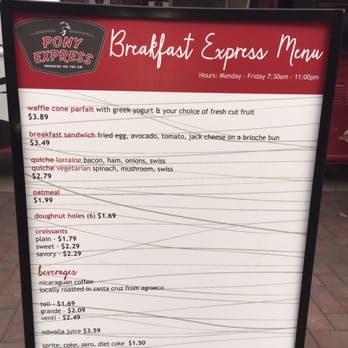 PONY
EXPRESS
Breakfast Express Menu
Hours: Monday - Friday 7:30am - 11:00pm
waffle cone parfait with greek yogurt & your choice of fresh cut fruit
$3.89
breakfast sandwich fried egg, avocado, tomato, jack cheese on a brioche bun
$3.49
quiche lorraine bacon, ham, onions, swiss
quiche vegetarian spinach, mushroom, swiss
$2.79
oatmeal
$1.99
doughnut holes (6) $1.69
croissants
plain - $1.79
sweet - $2.29
savory - $2.29
beverages
nicaraguan coffee
locally roasted in santa cruz from agroeco
tall - $1.69
grande - $2.09
venti - $2.49
odwalla juice $3.59
sprite, coke, zero, diet coke $1.50